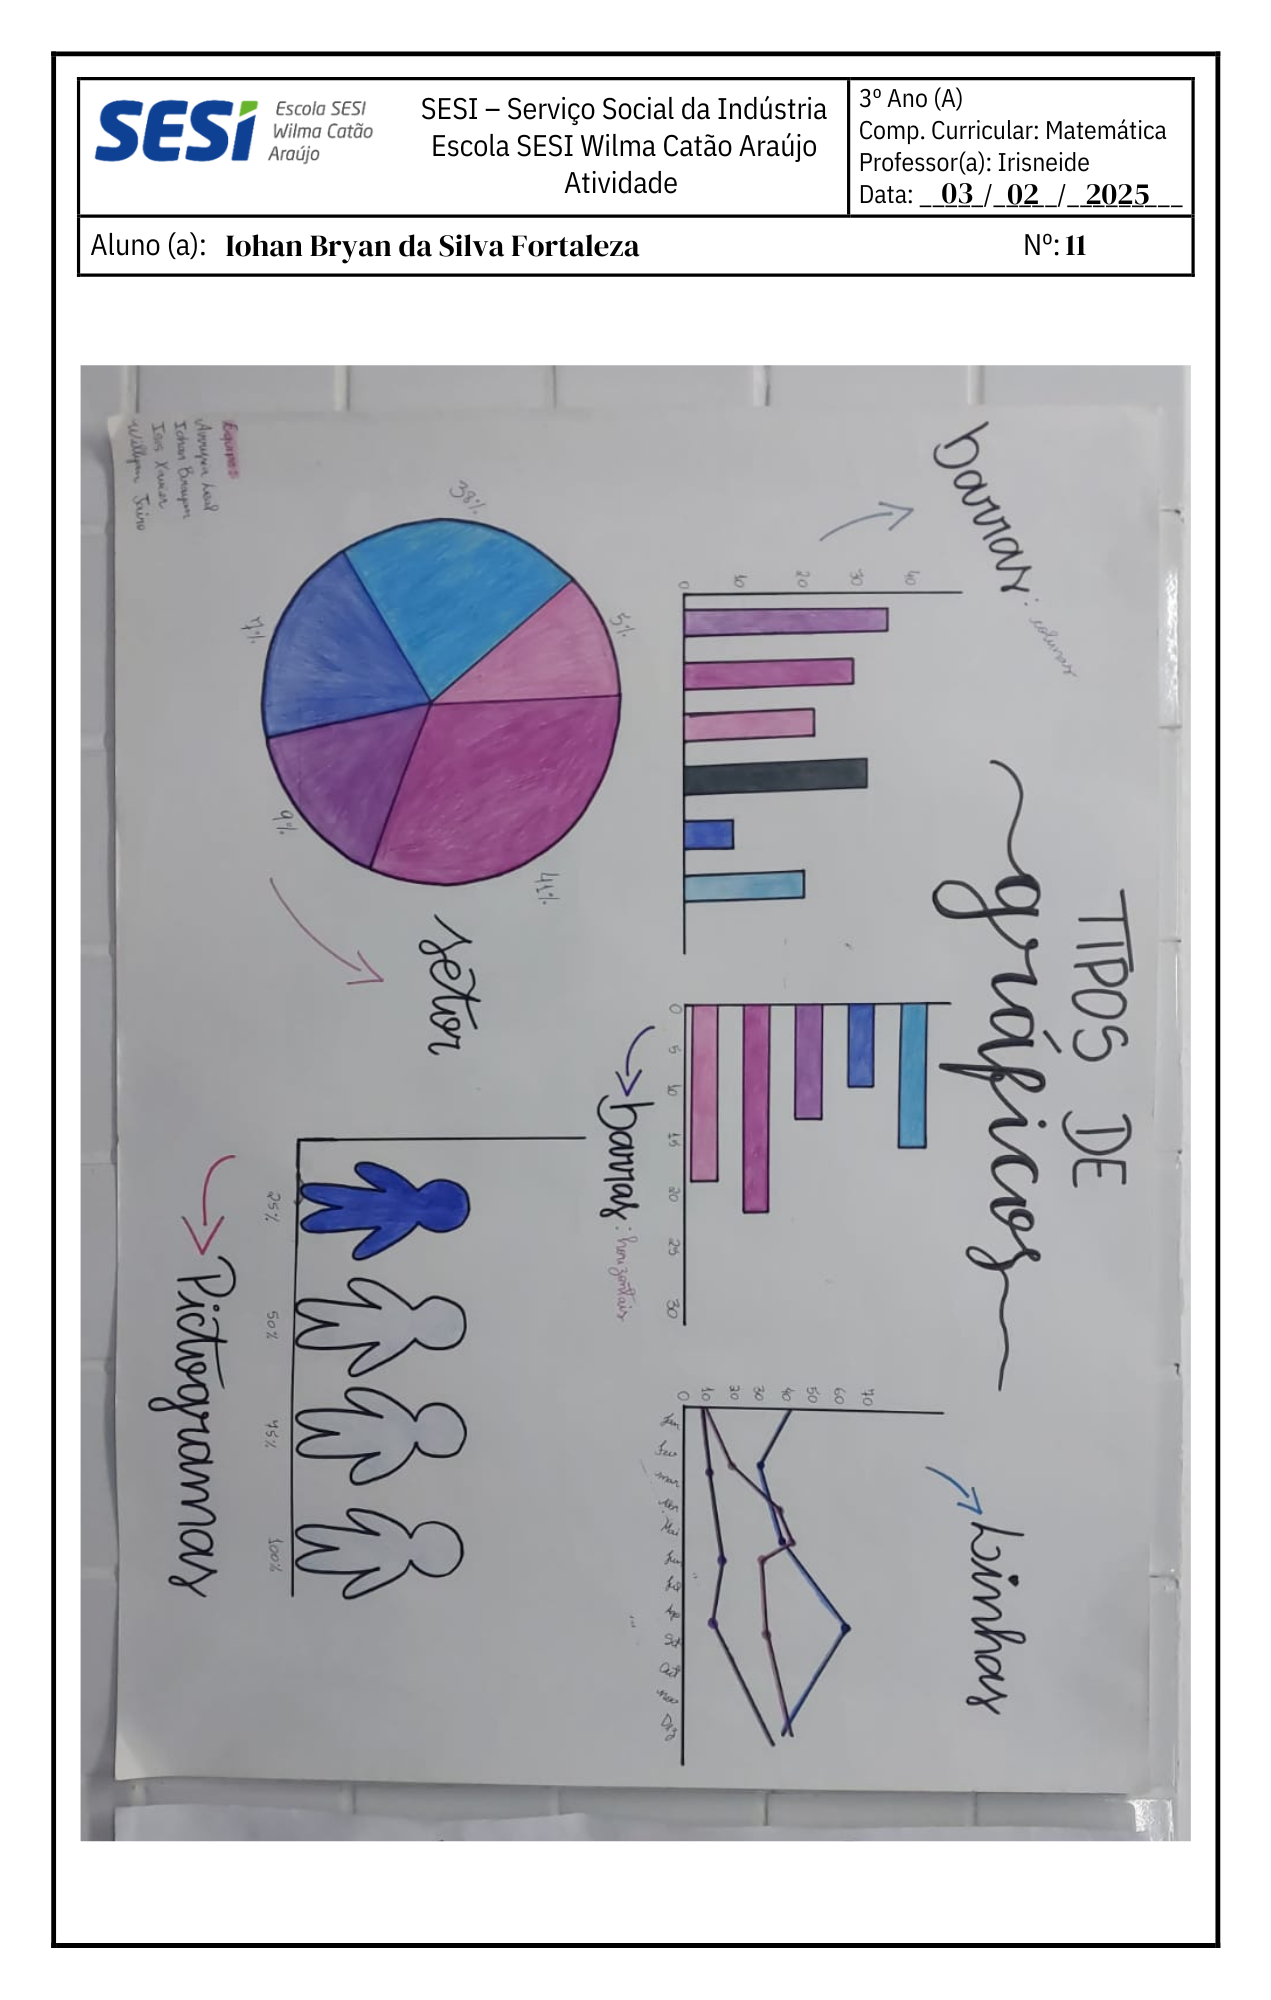 SESI
Escola SESI
Wilma Catão
Araújo
SESI – Serviço Social da Indústria
Escola SESI Wilma Catão Araújo
Atividade
3º Ano (A)
Comp. Curricular: Matemática
Professor(a): Irisneide
Data: 03/02/2025
Aluno (a): Iohan Bryan da Silva Fortaleza
Nº: 11
TIPOS DE
gráficos
barras: colunas
40
30
20
10
0
barras: horizontais
0 5 10 15 20 25 30
Linhas
70
60
50
40
30
20
10
0
Jan Fev mar Abr Mai Jun Jul Ago Set Out nov DEZ
setor
38%
5%
41%
9%
7%
Pictogramas
25% 50% 75% 100%
Equipe:
Iohan Brayan
Isis Xavier
Willyan Jairo